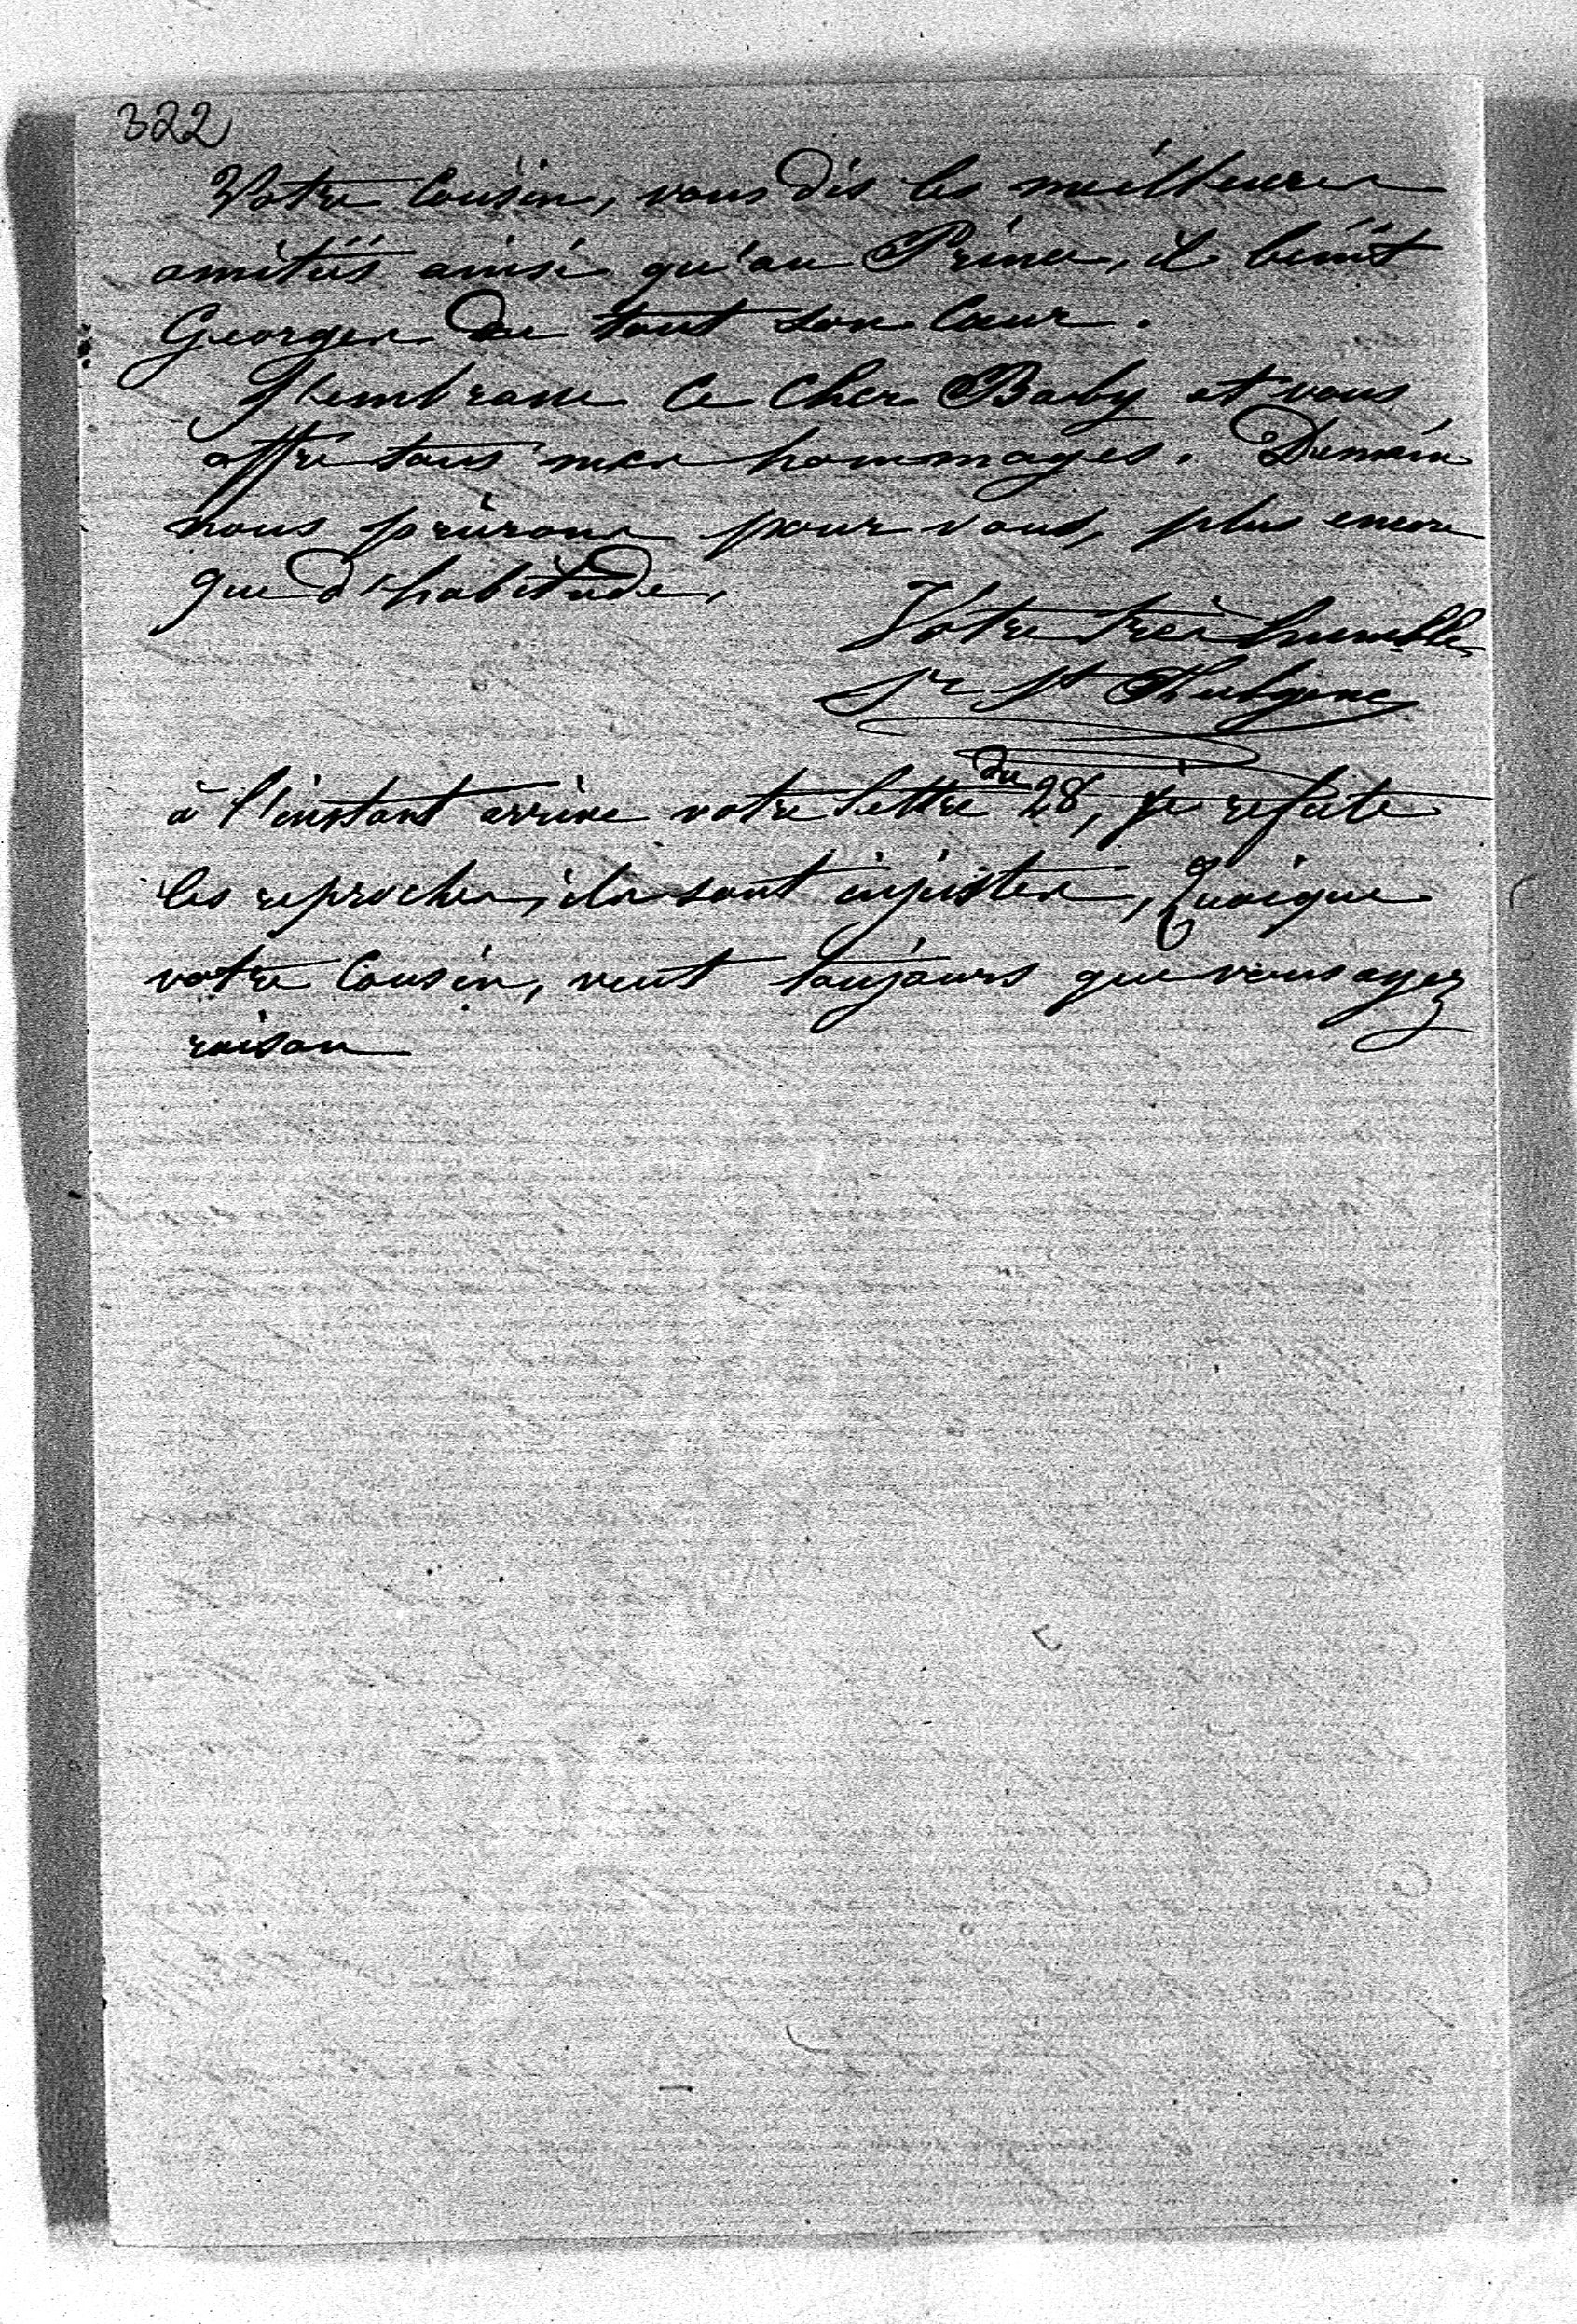 322
Votre Cousin, vous dis les meilleures
amitiés ainsi qu'au Prince, il bénit
Georges de tout son Cœur.
J'embrasse ce Cher Baby et vous
offre tous mes hommages. Demain
nous prierons pour vous, plus encore
que d'habitude,
Votre très humble
Sr St
à l'instant arrive votre lettre du 28, je refute
les reproches, ils sont injustes, Quoique
votre Cousin, veut toujours que vous ayez
raison